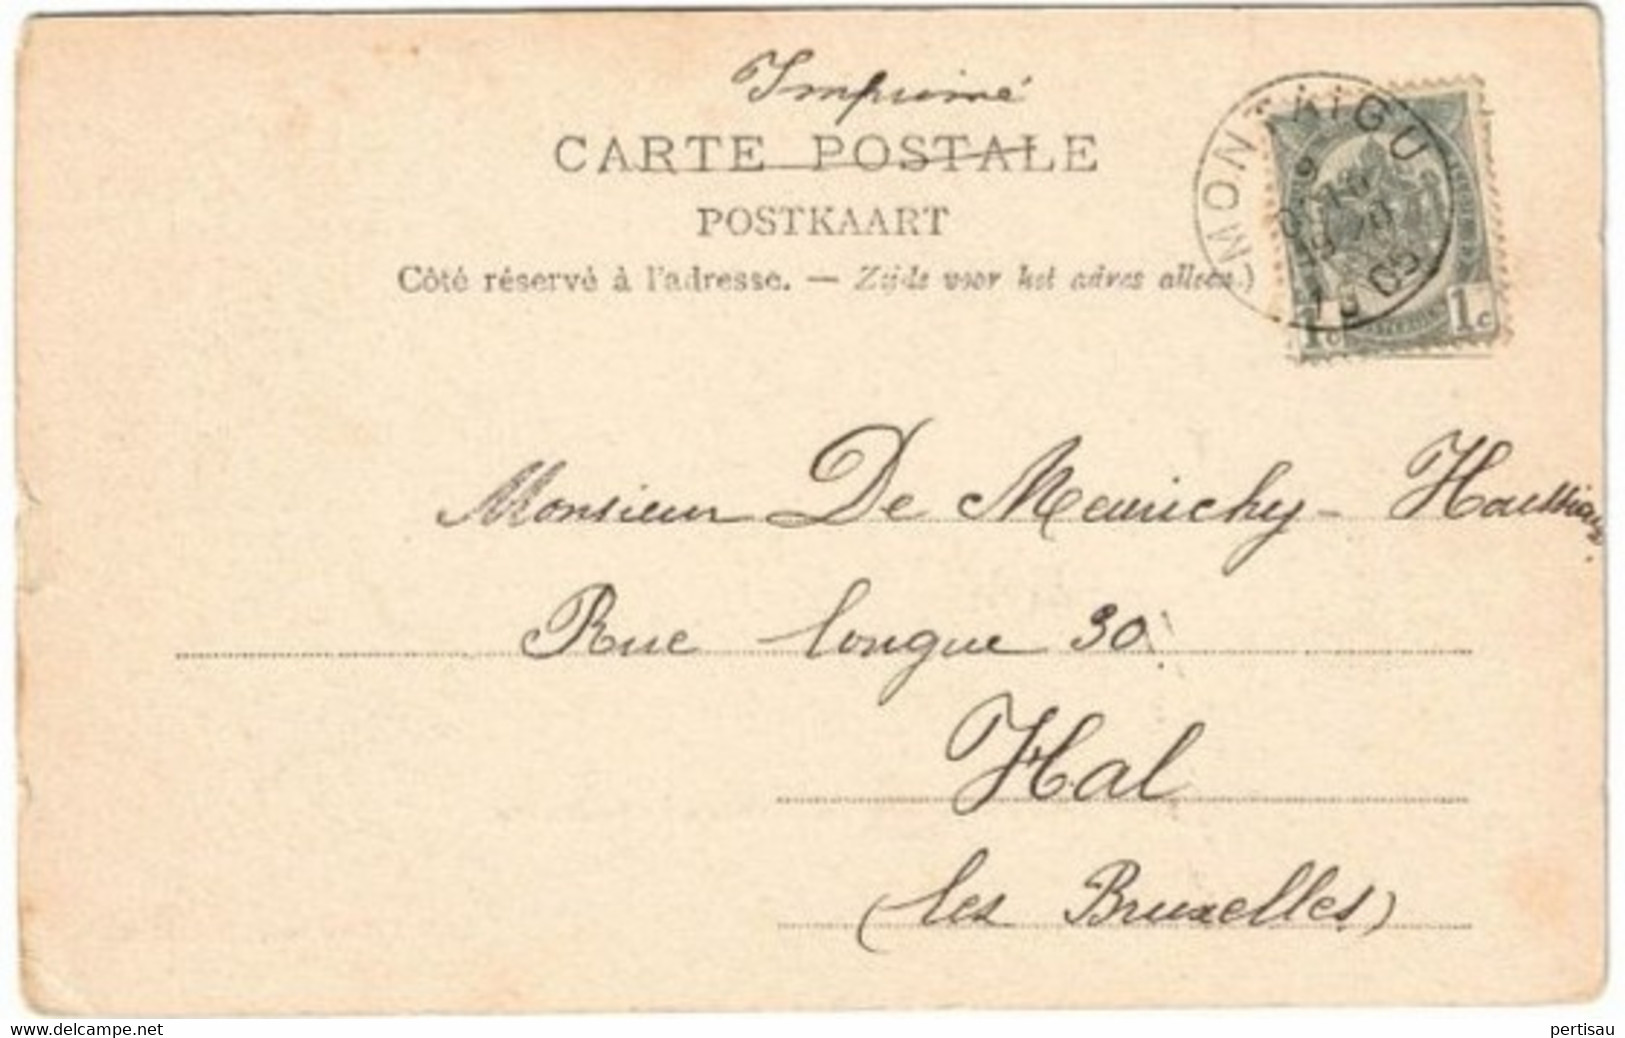 Imprimé
CARTE POSTALE
POSTKAART
Côté réservé à l'adresse. — Zijde voor het adres alleen.)
MONTAIGU
1905
1c 1c
Monsieur De Meurichy - Haussiaux
Rue longue 30
Hal
(les Bruxelles)
www.delcampe.net
pertisau